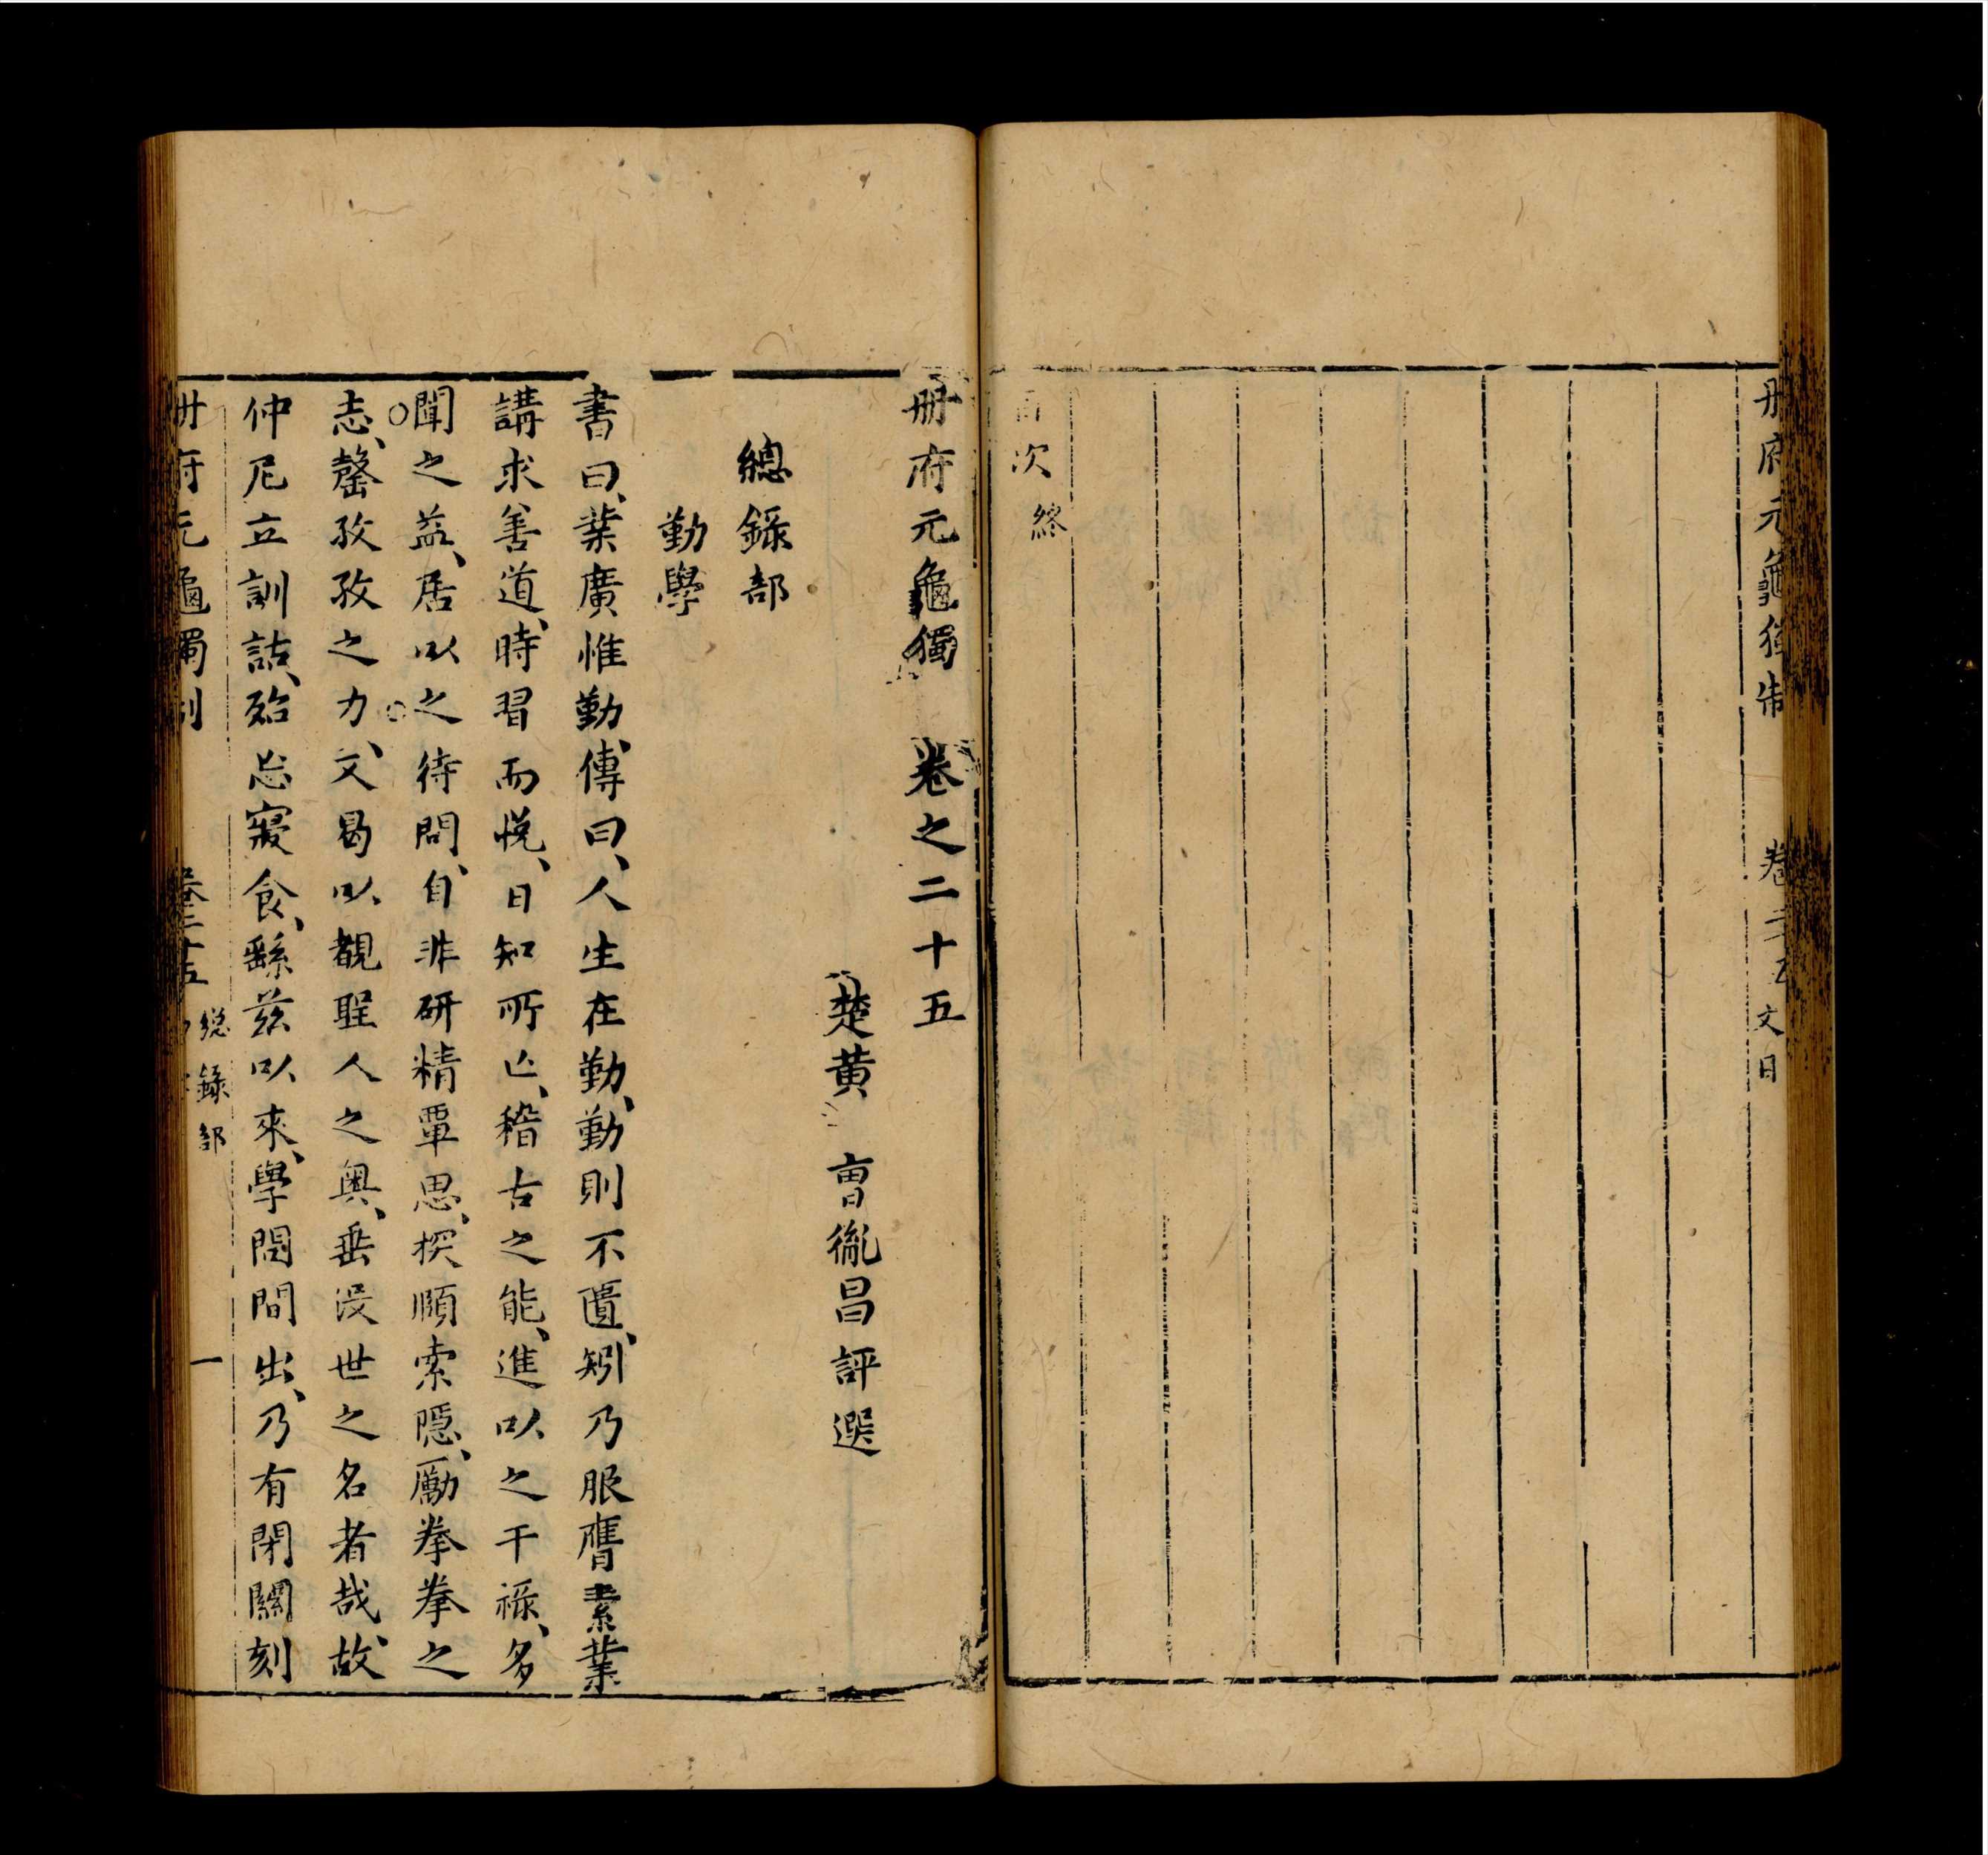 册府元龜獨制
卷二十五
文目
目次終
册府元龜獨 卷之二十五
楚黄 曹胤昌評選
總錄部
勤學
書曰、業廣惟勤、傳曰、人生在勤、勤則不匱、矧乃服膺素業
講求善道、時習而悅、日知所亡、稽古之能、進以之干祿、多
聞之益、居以之待問、自非研精覃思、探賾索隱、勵拳拳之
志、罄孜孜之力、又曷以覩聖人之奧、垂没世之名者哉、故
仲尼立訓詁、殆忘寢食、繇茲以來、學問間出、乃有閉關刻
册府元龜獨制
卷二十五
總錄部
一